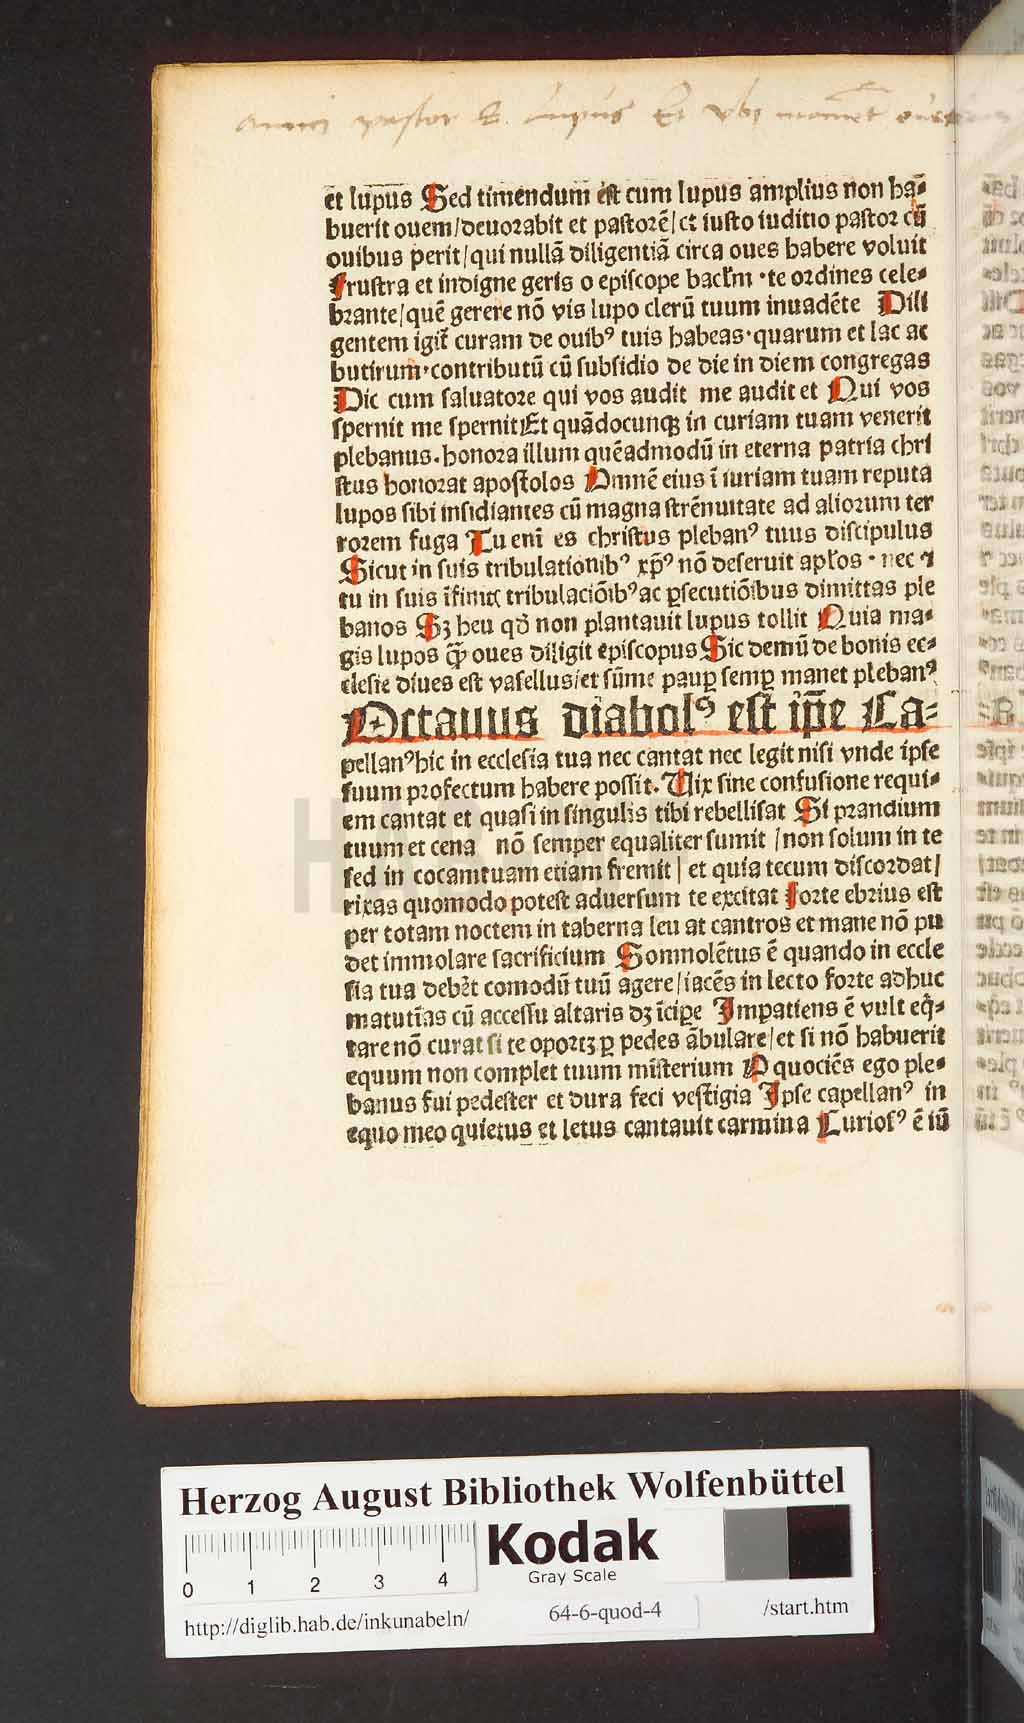 pastor & lupus Et vbi
et lupus Sed timendum est cum lupus amplius non ha⸗
buerit ouem/deuorabit et pastorē/et iusto iuditio pastor cū
ouibus perit/qui nullā diligentiā circa oues habere voluit
Frustra et indigne geris o episcope baclm̄ ·te ordines cele⸗
brante/quē gerere nō vis lupo clerū tuum inuadēte Dili
gentem igit̄ curam de ouibꝰ tuis habeas·quarum et lac ac
butirum·contributū cū subsidio de die in diem congregas
Dic cum saluatore qui vos audit me audit et Qui vos
spernit me spernit Et quādocunqꝫ in curiam tuam venerit
plebanus·honora illum quēadmodū in eterna patria chri
stus honorat apostolos Omnē eius ī iuriam tuam reputa
lupos sibi insidiantes cū magna strēnuitate ad aliorum ter
rorem fuga Tu enī es christus plebanꝰ tuus discipulus
Sicut in suis tribulationibꝰ xp̄ꝰ nō deseruit apl̄os · nec ⁊
tu in suis īfinitꝭ tribulaciōibꝰ ac ꝑsecutiōibus dimittas ple
banos Sꝫ heu qđ non plantauit lupus tollit Quia ma⸗
gis lupos qꝫ̄ oues diligit episcopus Sic demū de bonis ec⸗
clesie diues est vasellus/et sūme pauꝑ semꝑ manet plebanꝰ
Octauus diabolꝰ est ip̄e Ca⸗
pellanꝰ hic in ecclesia tua nec cantat nec legit nisi vnde ipse
suum profectum habere possit. Uix sine confusione requi⸗
em cantat et quasi in singulis tibi rebellisat Si prandium
tuum et cena nō semper equaliter sumit /non solum in te
sed in cocam tuam etiam fremit/ et quia tecum discordat/
rixas quomodo potest aduersum te excitat Forte ebrius est
per totam noctem in taberna leu at cantros et mane nō pu
det immolare sacrificium Somnolētus ē quando in eccle
sia tua debet comodū tuū agere/iacēs in lecto forte adhuc
matutīas cū accessu altaris dꝫ īcipe Impatiens ē vult eq̇⸗
tare nō curat si te oportꝫ ꝑ pedes ābulare/et si nō habuerit
equum non complet tuum mīsterium O quociēs ego ple⸗
banus fui pedester et dura feci vestigia Ipse capellanꝰ in
equo meo quietus et letus cantauit carmina Curiosꝰ ē iū
HAB
Herzog August Bibliothek Wolfenbüttel
Kodak
Gray Scale
0 1 2 3 4
http://diglib.hab.de/inkunabeln/ 64-6-quod-4 /start.htm